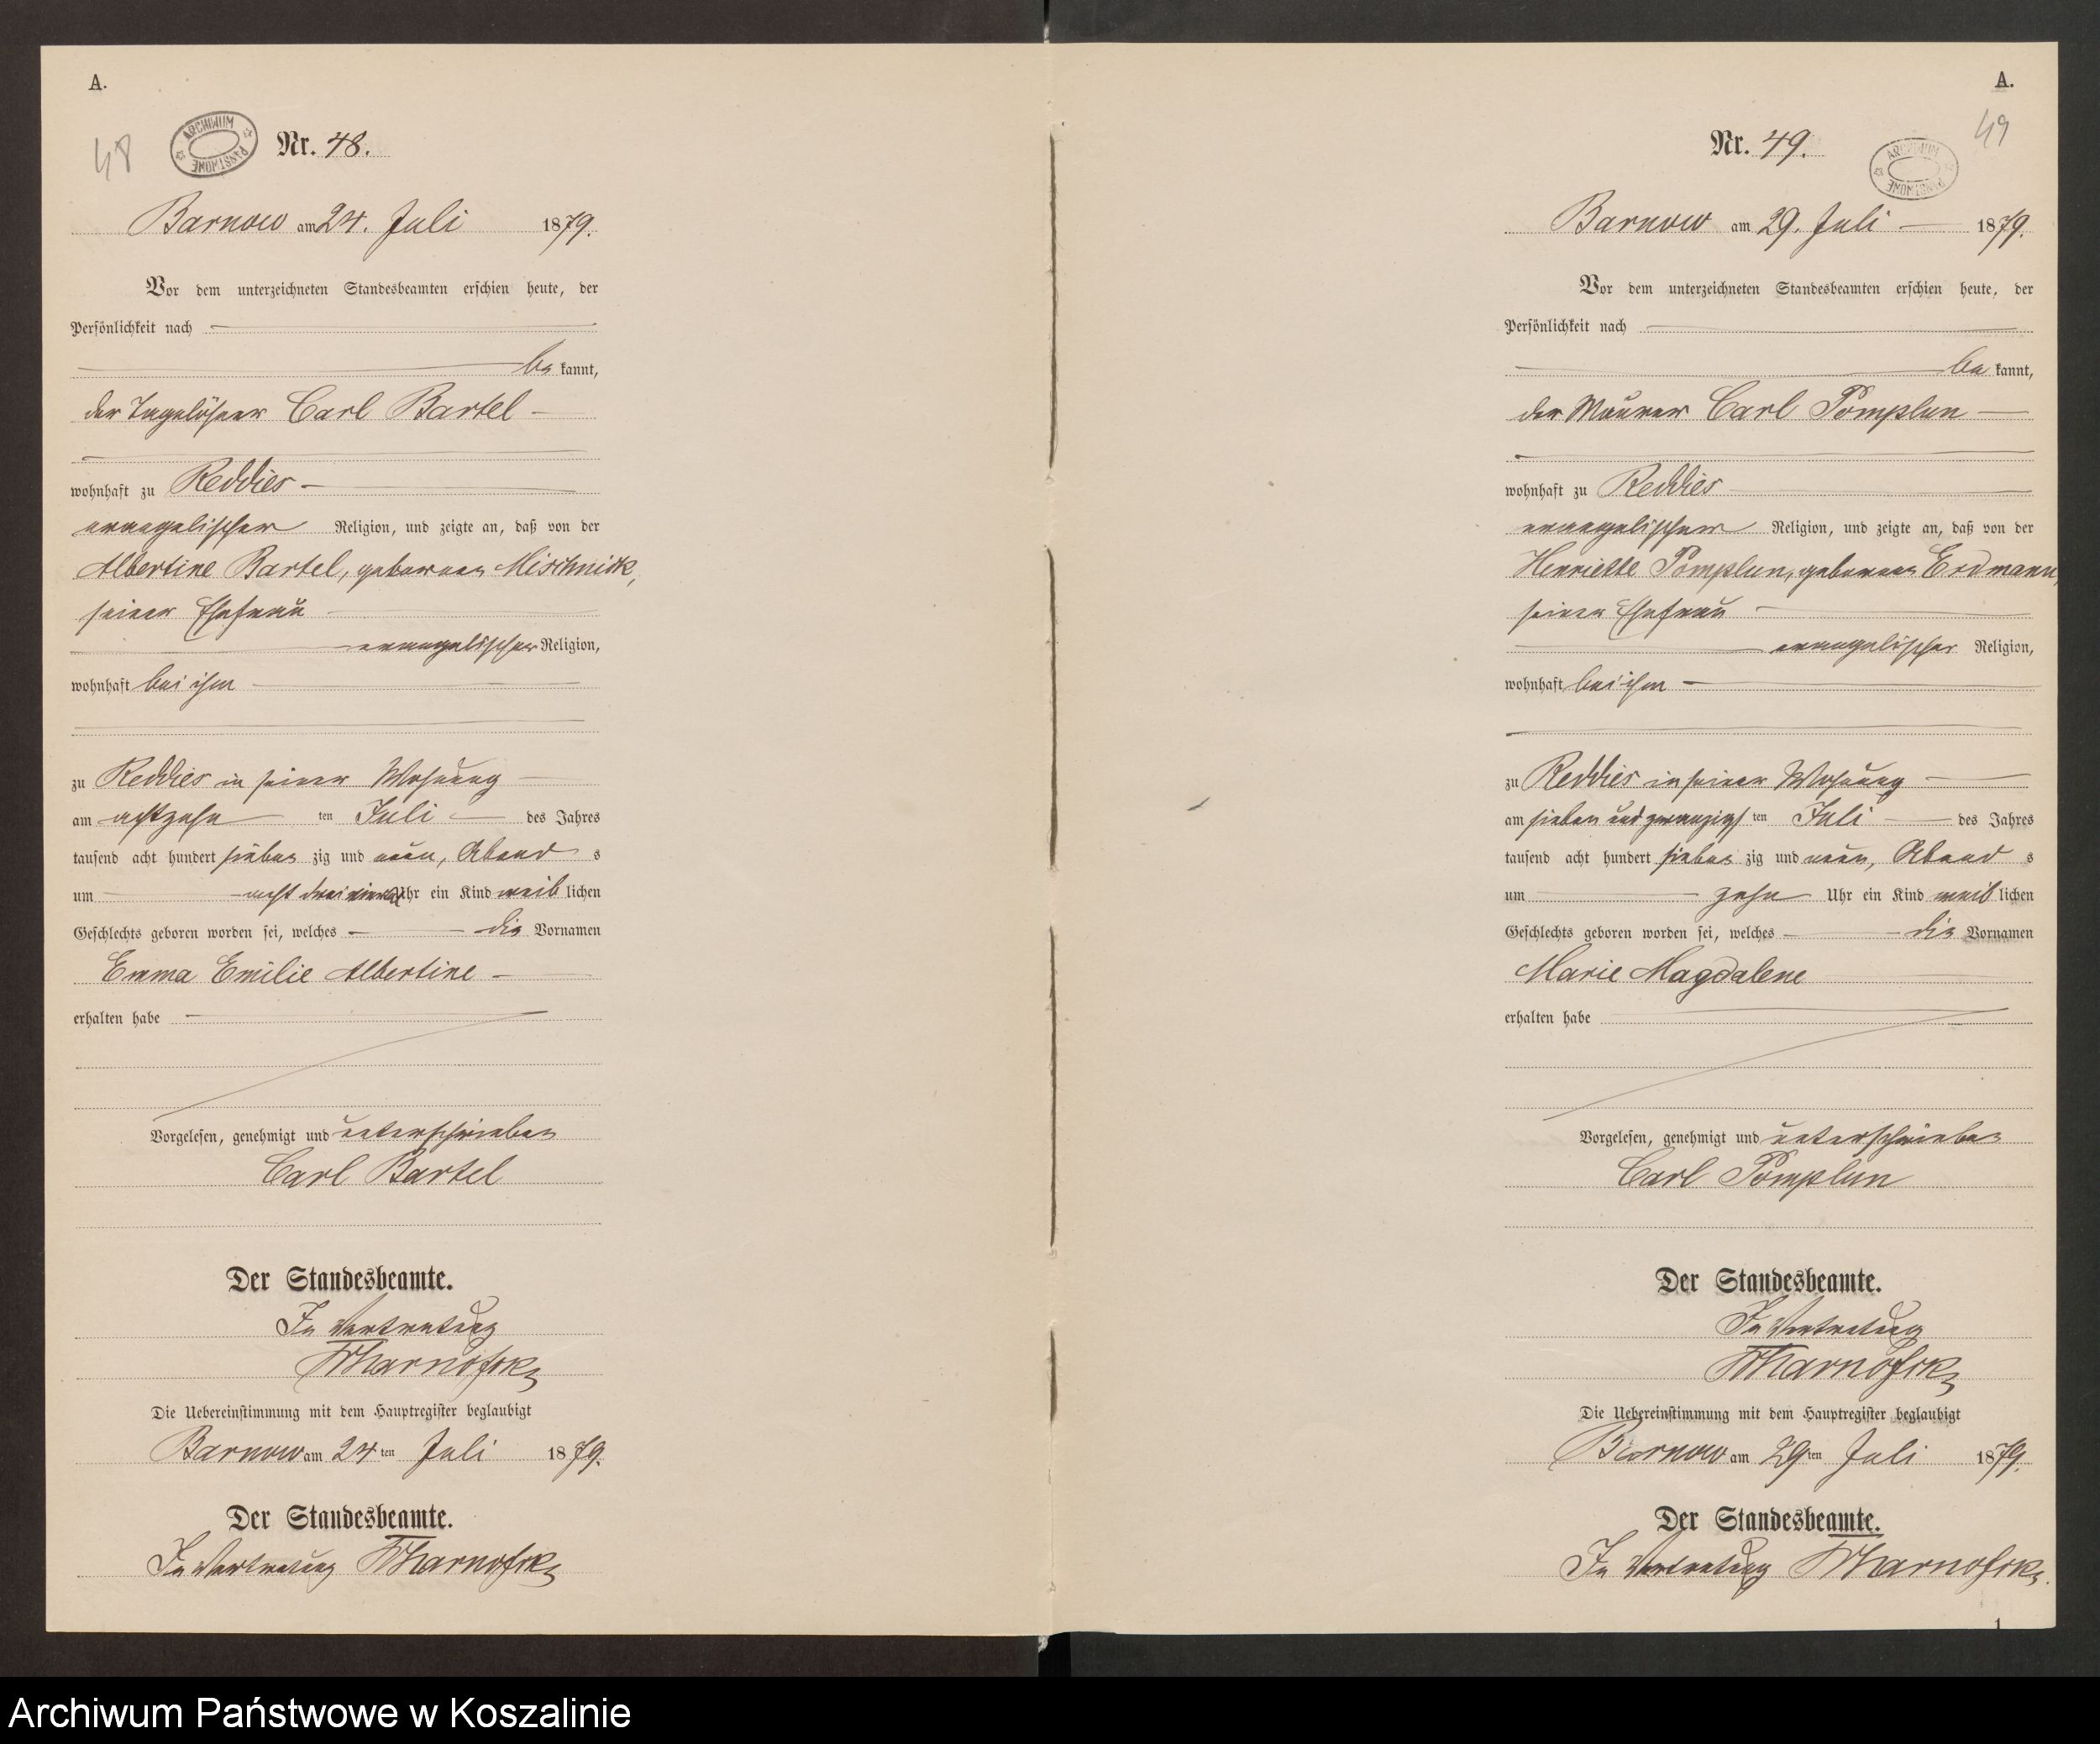 A.
48
ARCHIWUM PAŃSTWOWE
Nr. 48.
Barnow am 24. Juli 1879.
Vor dem unterzeichneten Standesbeamten erschien heute, der
Persönlichkeit nach
be kannt,
der Tagelöhner Carl Bartel
wohnhaft zu Reddies
evangelischer Religion, und zeigte an, daß von der
Albertine Bartel, geborenen Mischnick,
seiner Ehefrau
evangelischer Religion,
wohnhaft bei ihm
zu Reddies in seiner Wohnung
am achtzehn ten Juli des Jahres
tausend acht hundert sieben zig und neun, Abend s
um acht dreiviertel Uhr ein Kind weib lichen
Geschlechts geboren worden sei, welches die Vornamen
Emma Emilie Albertine
erhalten habe
Vorgelesen, genehmigt und unterschrieben
Carl Bartel
Der Standesbeamte.
In Vertretung
Die Uebereinstimmung mit dem Hauptregister beglaubigt
Barnow am 24 ten Juli 1879.
Der Standesbeamte.
In Vertretung
A.
49
Nr. 49.
ARCHIWUM PAŃSTWOWE
Barnow am 29. Juli 1879.
Vor dem unterzeichneten Standesbeamten erschien heute, der
Persönlichkeit nach
be kannt,
der Maurer Carl Pomplun
wohnhaft zu Reddies
evangelischer Religion, und zeigte an, daß von der
Henriette Pomplun, geborenen Erdmann,
seiner Ehefrau
evangelischer Religion,
wohnhaft bei ihm
zu Reddies in seiner Wohnung
am sieben und zwanzigs ten Juli des Jahres
tausend acht hundert sieben zig und neun, Abend s
um zehn Uhr ein Kind weib lichen
Geschlechts geboren worden sei, welches die Vornamen
Marie Magdalene
erhalten habe
Vorgelesen, genehmigt und unterschrieben
Carl Pomplun
Der Standesbeamte.
In Vertretung
Die Uebereinstimmung mit dem Hauptregister beglaubigt
Barnow am 29 ten Juli 1879.
Der Standesbeamte.
In Vertretung
1
Archiwum Państwowe w Koszalinie